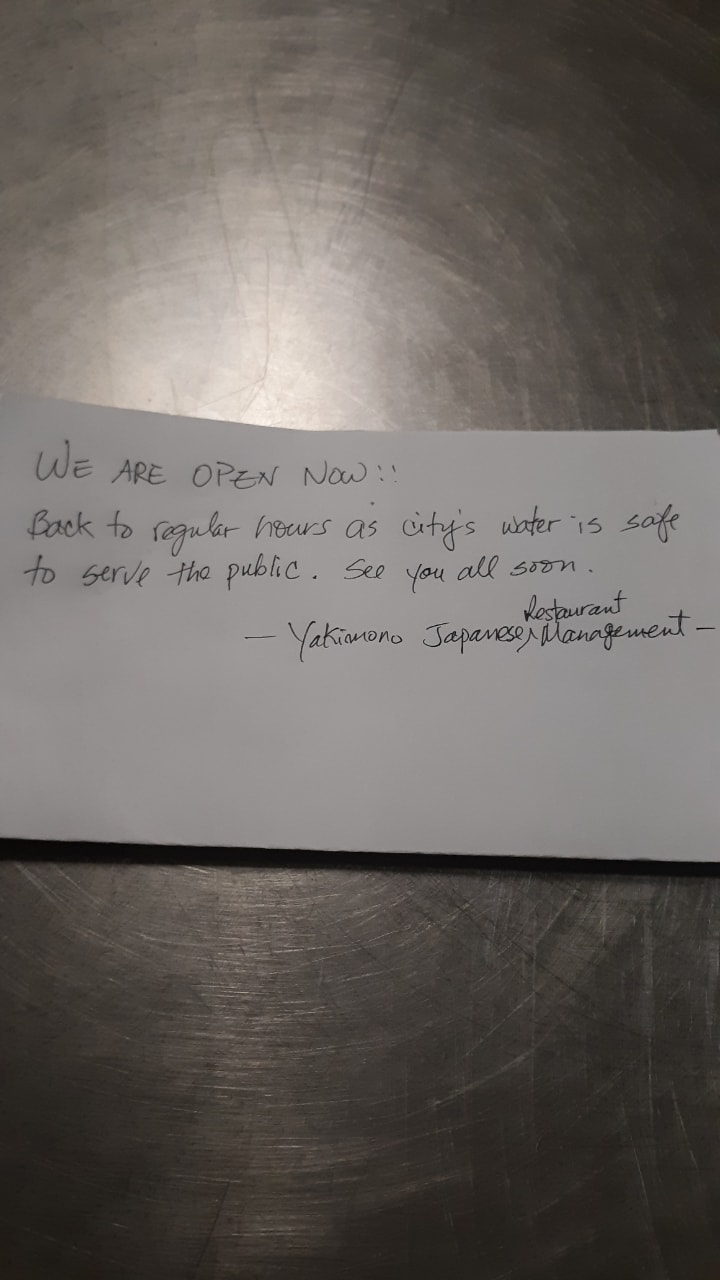 WE ARE OPEN NOW!!
Back to regular hours as city's water is safe
to serve the public. See you all soon.
Restaurant
— Yakimono Japanese, Management —